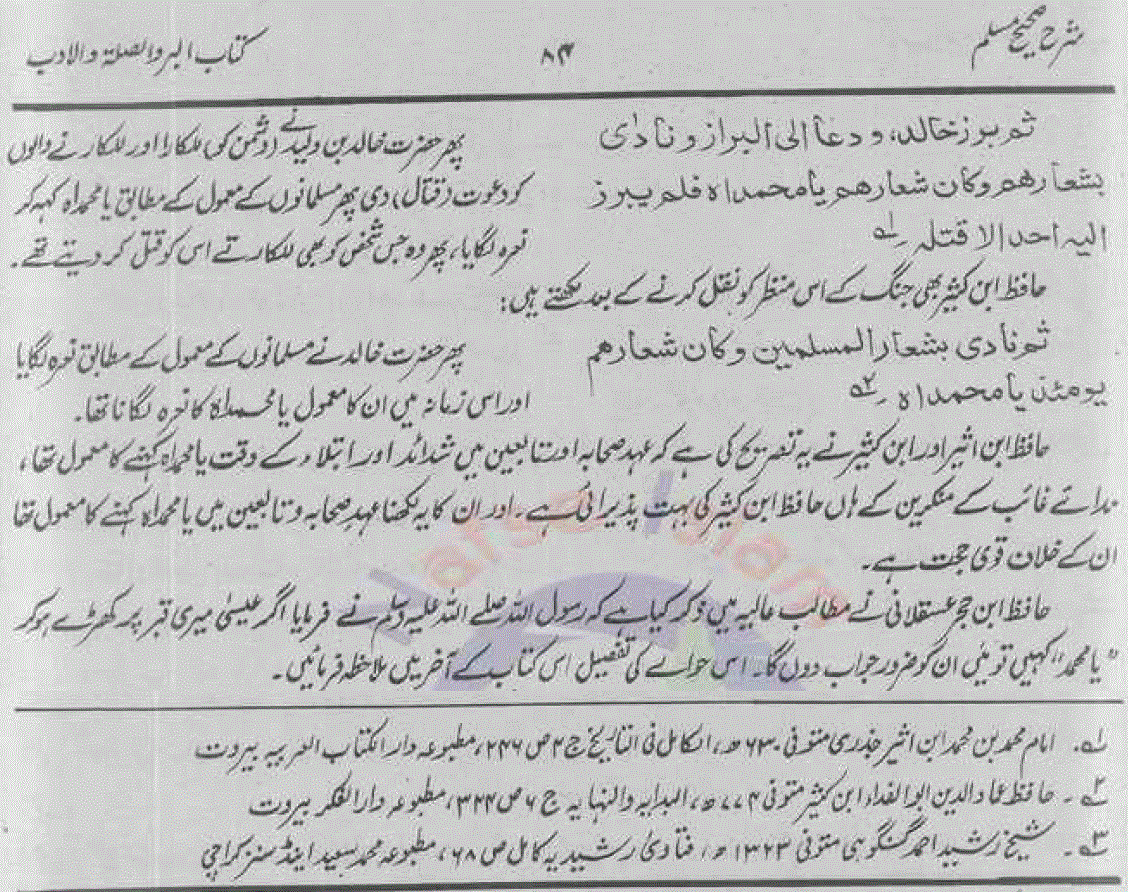 شرح صحیح مسلم
۸۴
کتاب البر والصلۃ والادب
ثم برز خالد، ودعا الی البراز ونادٰی
بشعارهم وکان شعارهم یا محمداہ فلم یبرز
الیہ احد الا قتلہ ۔ لہ۱
پھر حضرت خالد بن ولید نے (دشمن کو) للکارا اور للکارنے والوں
کو دعوت (قتال) دی پھر مسلمانوں کے معمول کے مطابق یا محمداہ کہہ کر
نعرہ لگایا، پھر وہ جس شخص کو بھی للکارتے اس کو قتل کر دیتے تھے۔
حافظ ابن کثیر بھی جنگ کے اس منظر کو نقل کرنے کے بعد لکھتے ہیں:
ثم نادی بشعار المسلمین وکان شعارهم
یومئذ یا محمداہ ۔ ۲
پھر حضرت خالد نے مسلمانوں کے معمول کے مطابق نعرہ لگایا
اور اس زمانہ میں ان کا معمول یا محمداہ کا نعرہ لگانا تھا۔
حافظ ابن اثیر اور ابن کثیر نے یہ تصریح کی ہے کہ عہد صحابہ اور تابعین میں شدائد اور ابتلاء کے وقت یا محمداہ کہنے کا معمول تھا،
ندائے غائب کے منکرین کے ہاں حافظ ابن کثیر کی بہت پذیرائی ہے۔ اور ان کا یہ لکھنا عہد صحابہ و تابعین میں یا محمداہ کہنے کا معمول تھا
ان کے خلاف قوی حجت ہے۔
حافظ ابن حجر عسقلانی نے مطالب عالیہ میں ذکر کیا ہے کہ رسول اللہ صلے اللہ علیہ وسلم نے فرمایا اگر عیسیٰ میری قبر پر کھڑے ہو کر
”یا محمد“ کہیں تو میں ان کو ضرور جواب دوں گا۔ اس حوالے کی تفصیل اس کتاب کے آخر میں ملاحظہ فرمائیں۔
۱۔ امام محمد بن محمد ابن اثیر جذری متوفی ۶۳۰ھ، الکامل فی التاریخ ج ۲ ص ۲۴۶، مطبوعہ دار الکتاب العربیہ بیروت
۲۔ حافظ عماد الدین ابو الفداء ابن کثیر متوفی ۷۷۴ھ، البدایہ والنہایہ ج ۶ ص ۳۲۴، مطبوعہ دار الفکر بیروت
۳۔ شیخ رشید احمد گنگوہی متوفی ۱۳۲۳ھ، فتاویٰ رشیدیہ کامل ص ۶۸، مطبوعہ محمد سعید اینڈ سنز کراچی